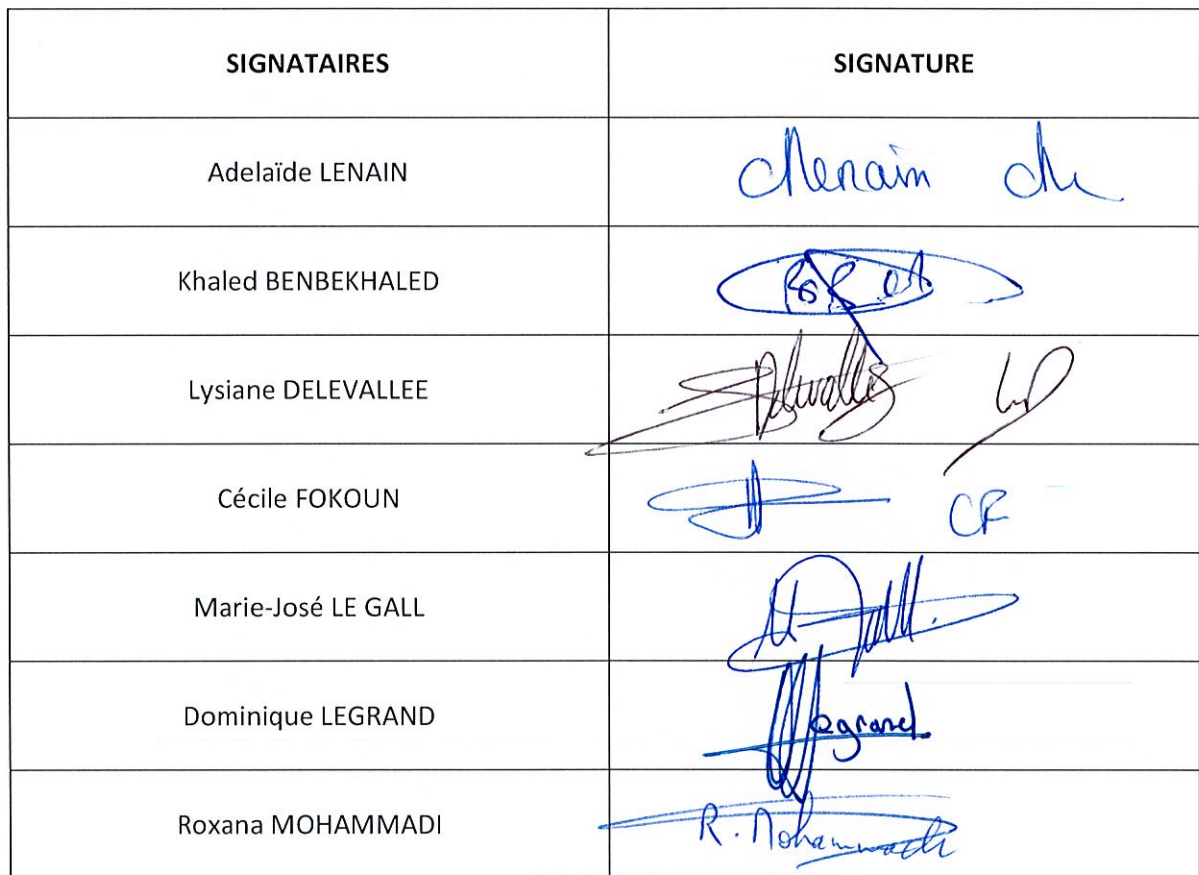 SIGNATAIRES SIGNATURE
Adelaïde LENAIN
Khaled BENBEKHALED
Lysiane DELEVALLEE
Cécile FOKOUN CF
Marie-José LE GALL
Dominique LEGRAND Legrand
Roxana MOHAMMADI R. Mohammadi